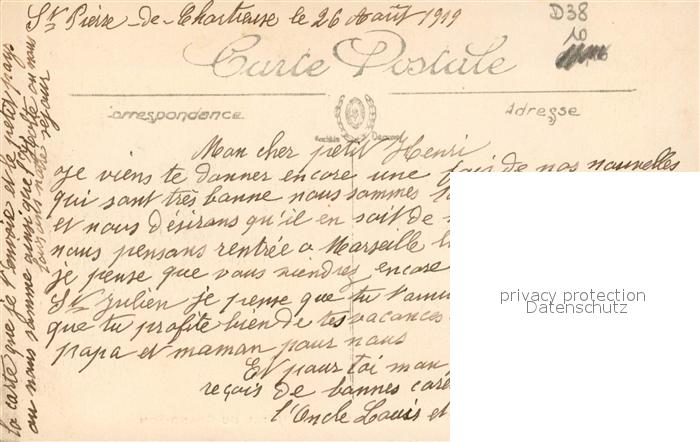 St Pierre-de-Chartreuse le 26 Août 1919
D38
10
Carte Postale
Correspondance
Adresse
Mon cher petit Henri
Je viens te donner encore une fois de nos nouvelles
qui sont très bonne nous sommes
et nous désirons qu'il en soit de
nous pensons rentrée a Marseille
je pense que vous viendrez encore
St Julien je pense que tu
que tu profite bien de tes vacances
papa et maman pour nous
Et pour toi mon
reçois de bonnes
l'Oncle Louis et
la carte que je t'envoie et le petit pays
ou nous somme ainsi que l'
privacy protection
Datenschutz